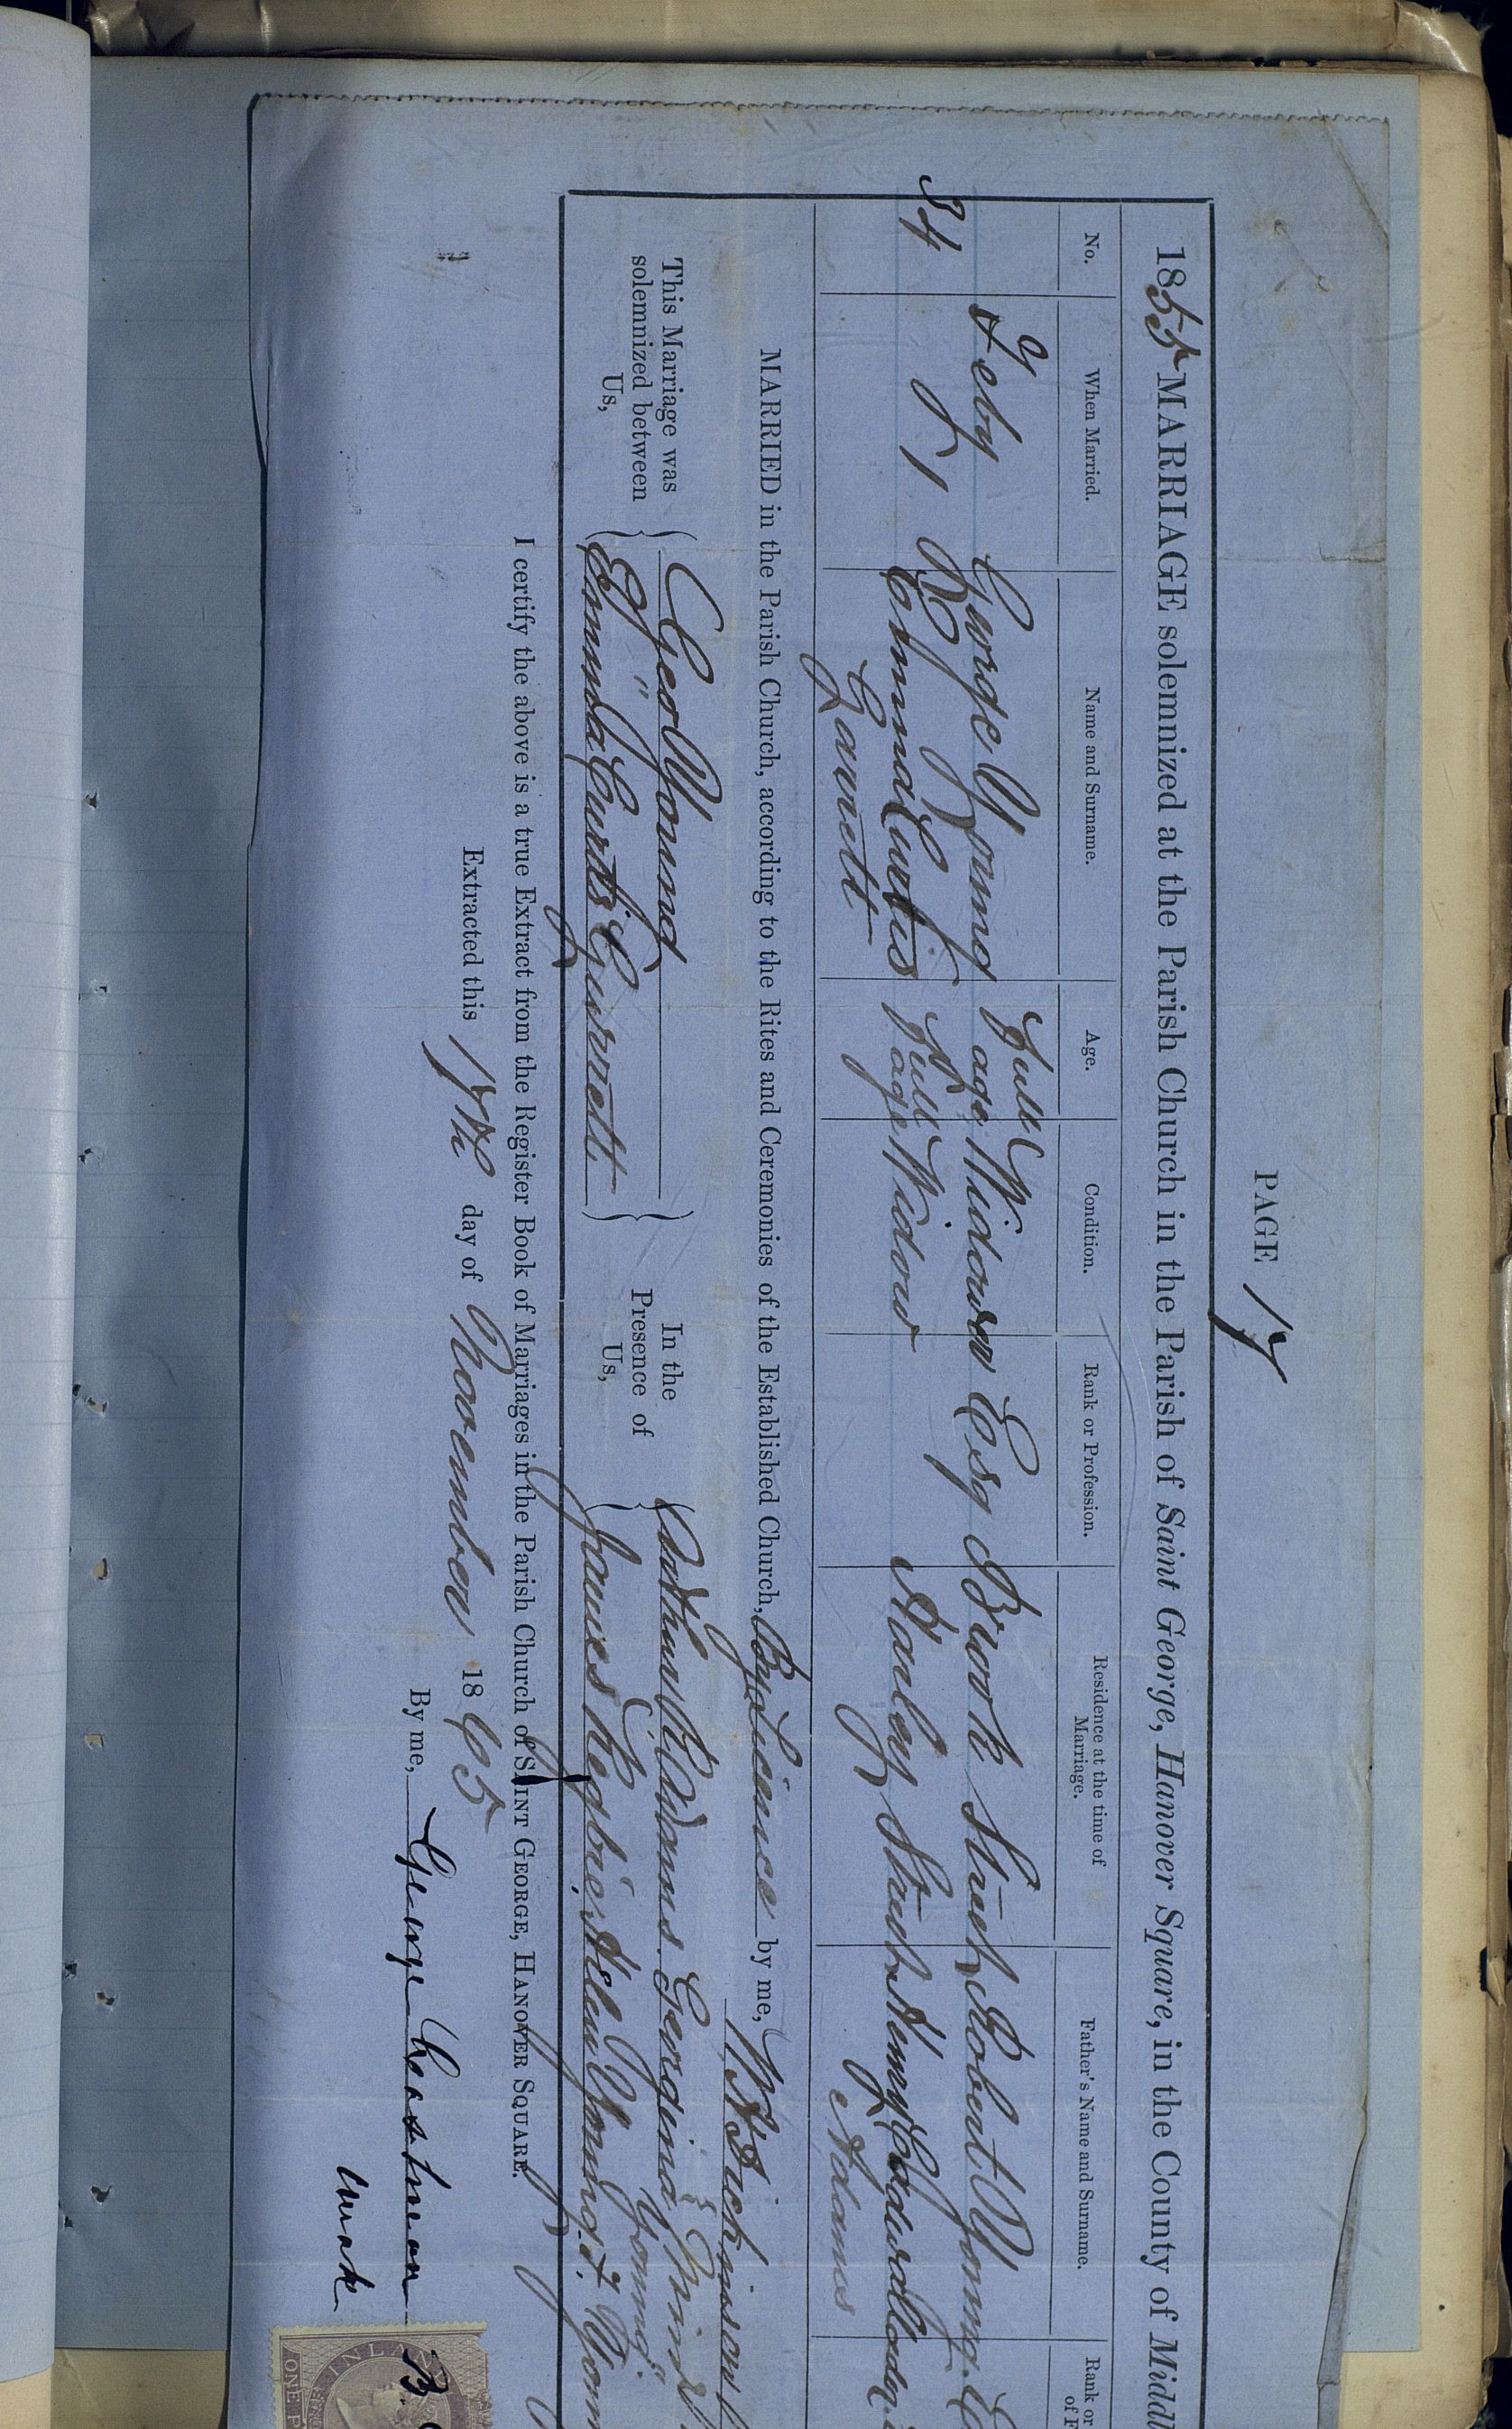 PAGE 17
1855 MARRIAGE solemnized at the Parish Church in the Parish of Saint George, Hanover Square, in the County of Middl
No. When Married. Name and Surname. Age. Condition. Rank or Profession. Residence at the time of Marriage. Father's Name and Surname. Rank or
34 Feby 1 George Young Full age Widower Esq Brook Street Robert Young
Emma Curtis Garrett Full age Widow Stanley Street Henry Adams
MARRIED in the Parish Church, according to the Rites and Ceremonies of the Established Church, By Licence by me,
This Marriage was solemnized between Us, Geo Young
Emma Curtis Garrett
In the Presence of Us, Arthur R Adams. Georgina Young.
James Helen Young
I certify the above is a true Extract from the Register Book of Marriages in the Parish Church of SAINT GEORGE, HANOVER SQUARE.
Extracted this 17th day of November 1865
By me, George
INLAN
ONE P